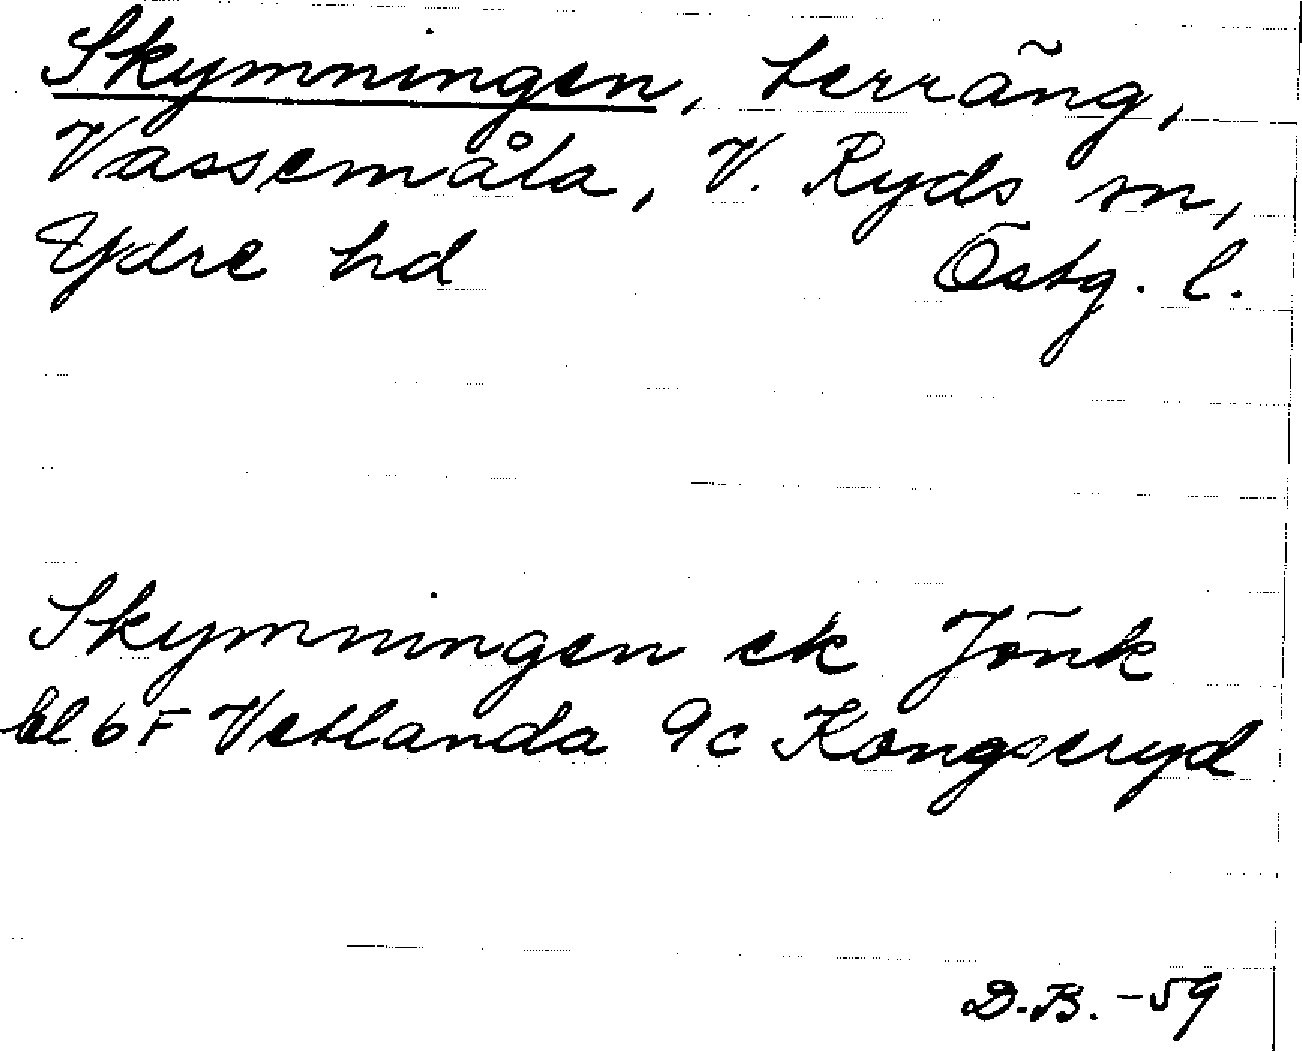 Skymningen, terräng,
Vassemåla, V. Ryds sn,
Ydre hd Östg. l.
Skymningen ek Jönk
bl 6 F Vetlanda 9c Kongseryd
D.B. -59